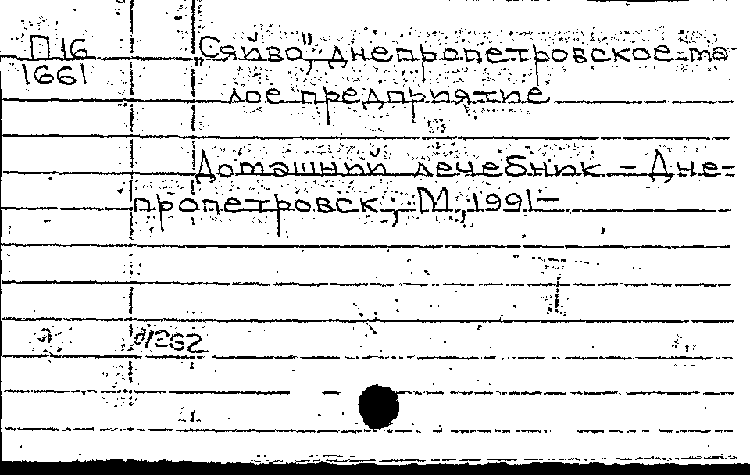 П 16 "Сяйво", днепропетровское ма-
1661
лое предприятие
Домашний лечебник - Дне-
пропетровск; М, 1991-